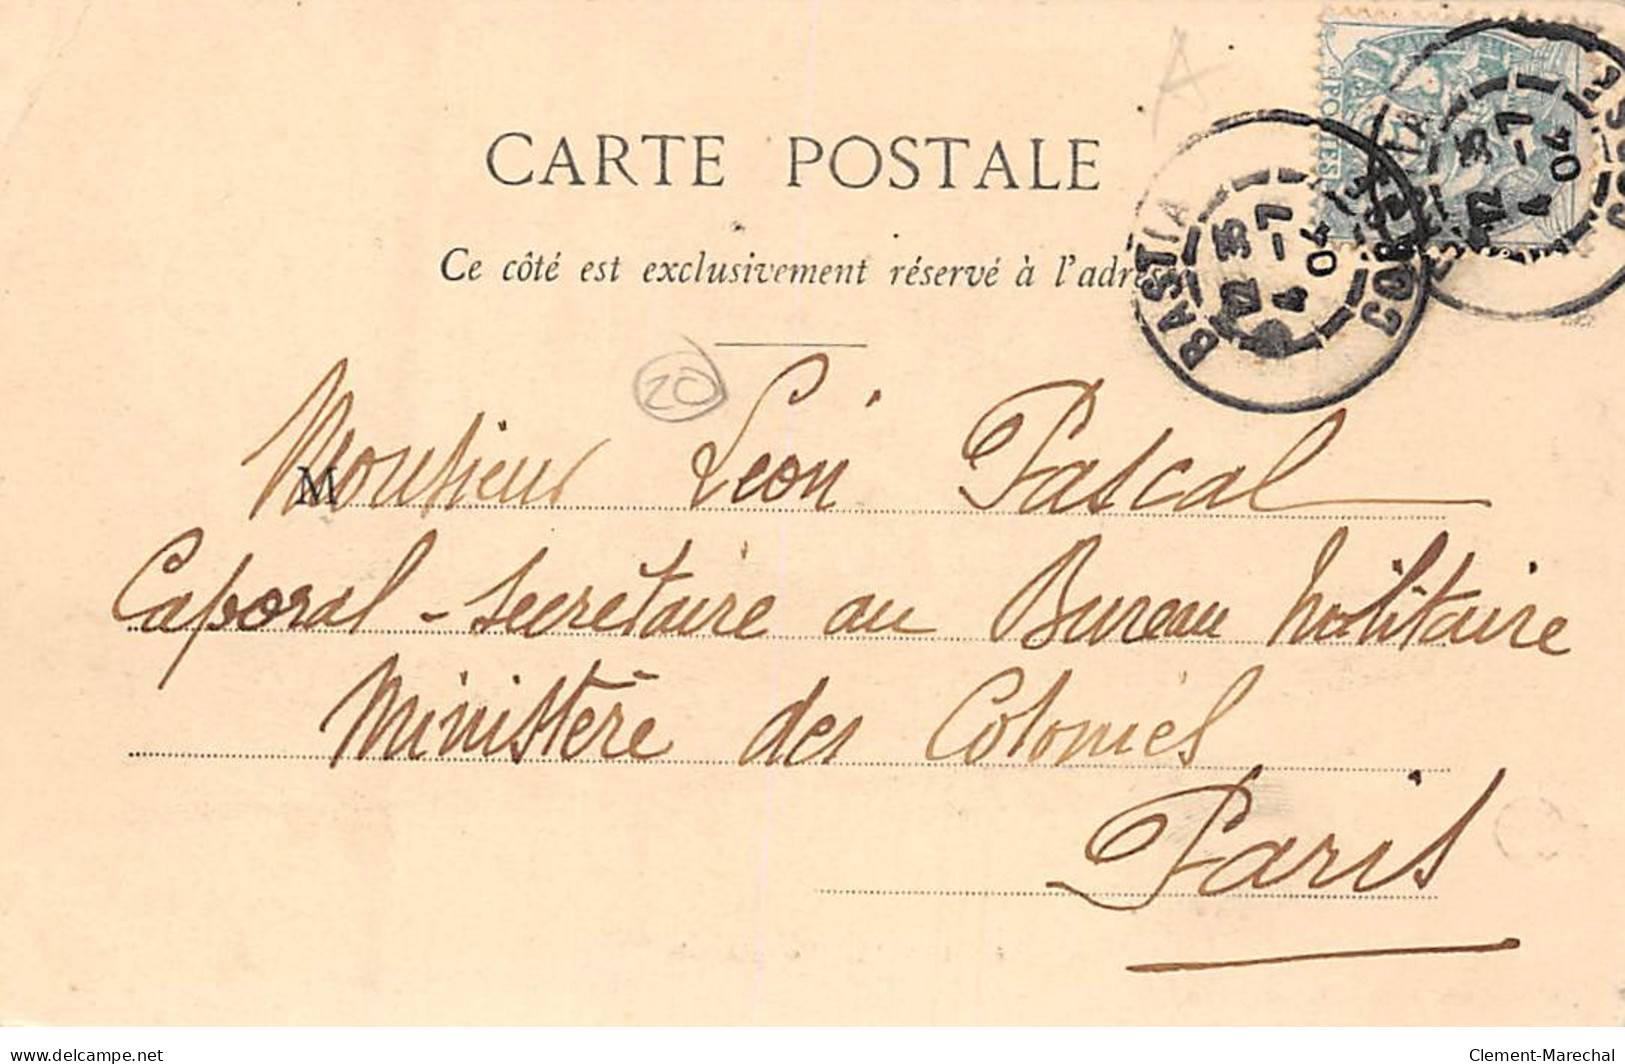 A
CARTE POSTALE
Ce côté est exclusivement réservé à l'adresse
BASTIA
12 35
4 -7
04
CORSE
POSTES
20
M
Monsieur Léon Pascal
Caporal-secrétaire au Bureau Militaire
Ministère des Colonies
Paris
delcampe.net
Clement-Marechal